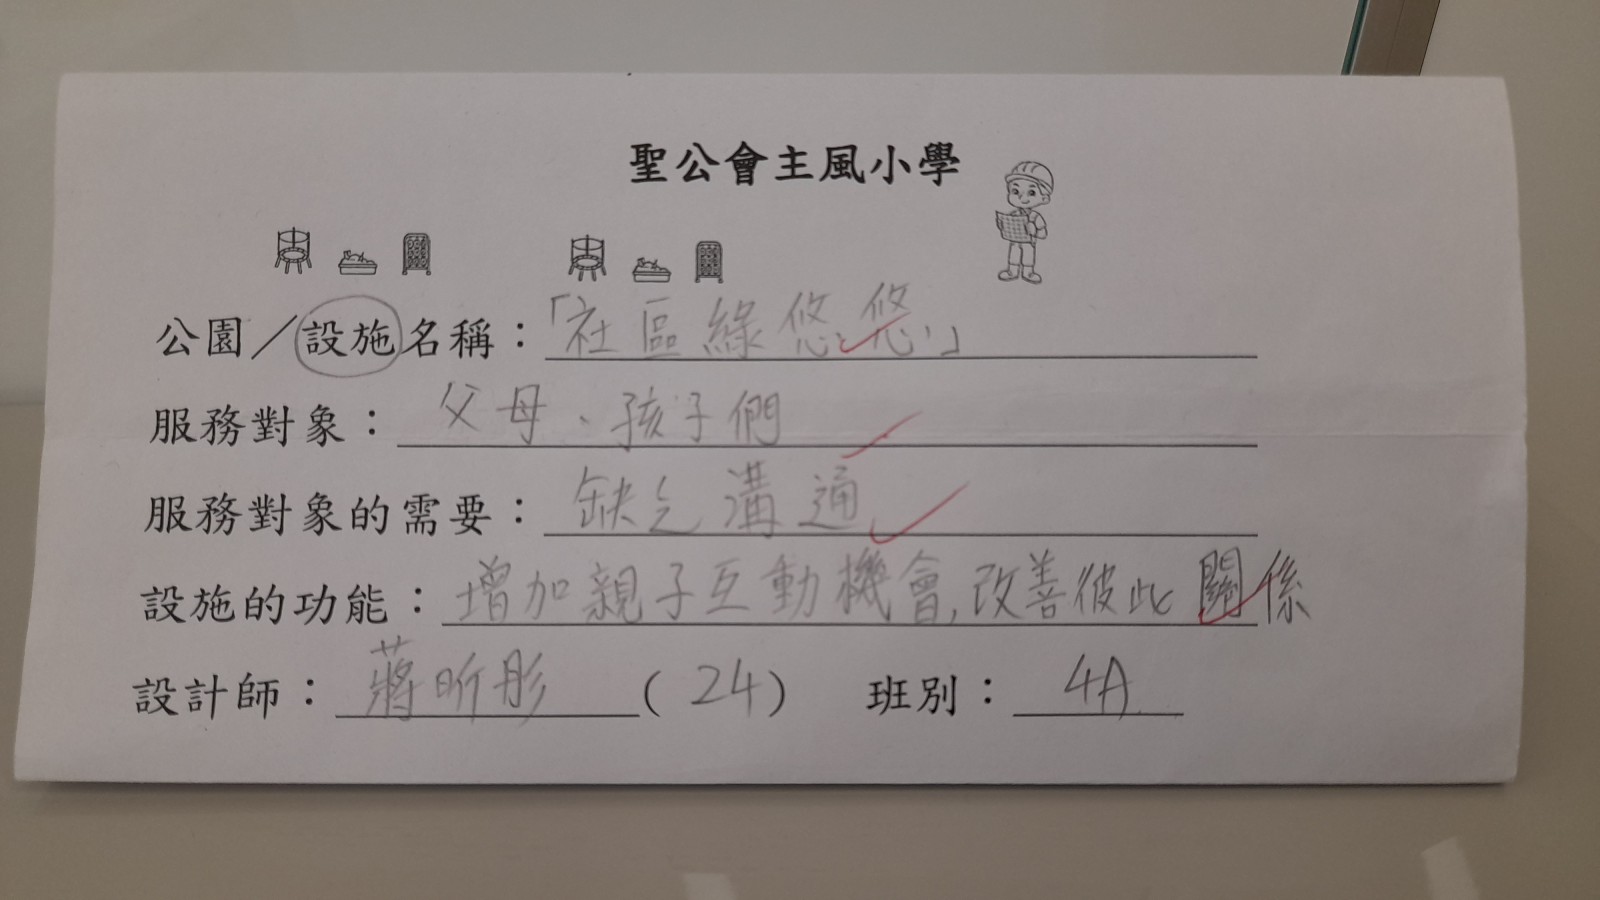 聖公會主風小學
公園／設施名稱：「社區綠悠悠」
服務對象：父母、孩子們
服務對象的需要：缺乏溝通
設施的功能：增加親子互動機會,改善彼此關係
設計師：蔣昕彤(24) 班別：4A